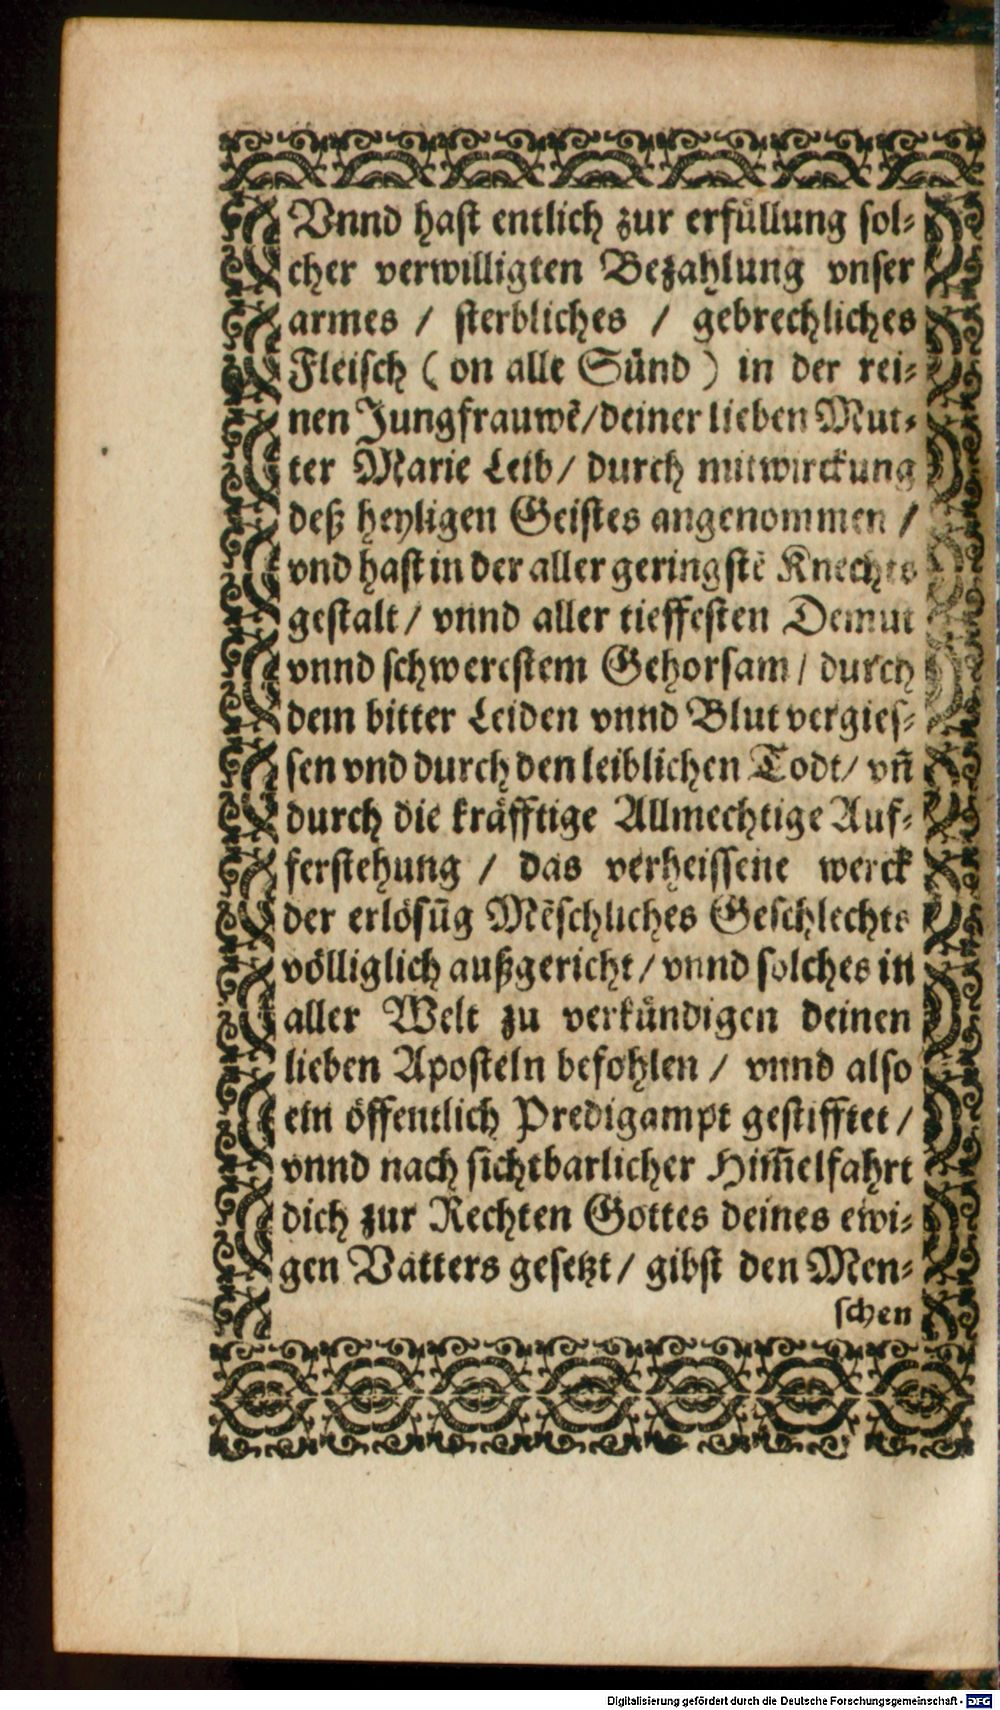 Vnnd hast entlich zur erfüllung sol-
cher verwilligten Bezahlung vnser
armes / sterbliches / gebrechliches
Fleisch ( on alle Sünd ) in der rei-
nen Jungfrauwẽ/deiner lieben Mut-
ter Marie Leib/ durch mitwirckung
deß heyligen Geistes angenommen /
vnd hast in der aller geringstẽ Knechts
gestalt/ vnnd aller tieffesten Demut
vnnd schwerestem Gehorsam/ durch
dein bitter Leiden vnnd Blut vergies-
sen vnd durch den leiblichen Todt/ vñ
durch die kräfftige Allmechtige Auf-
ferstehung / das verheissene werck
der erlösũg Mẽschliches Geschlechts
völliglich außgericht/ vnnd solches in
aller Welt zu verkündigen deinen
lieben Aposteln befohlen / vnnd also
ein öffentlich Predigampt gestifftet /
vnnd nach sichtbarlicher Him̃elfahrt
dich zur Rechten Gottes deines ewi-
gen Vatters gesetzt/ gibst den Men-
schen
Digitalisierung gefördert durch die Deutsche Forschungsgemeinschaft - DFG